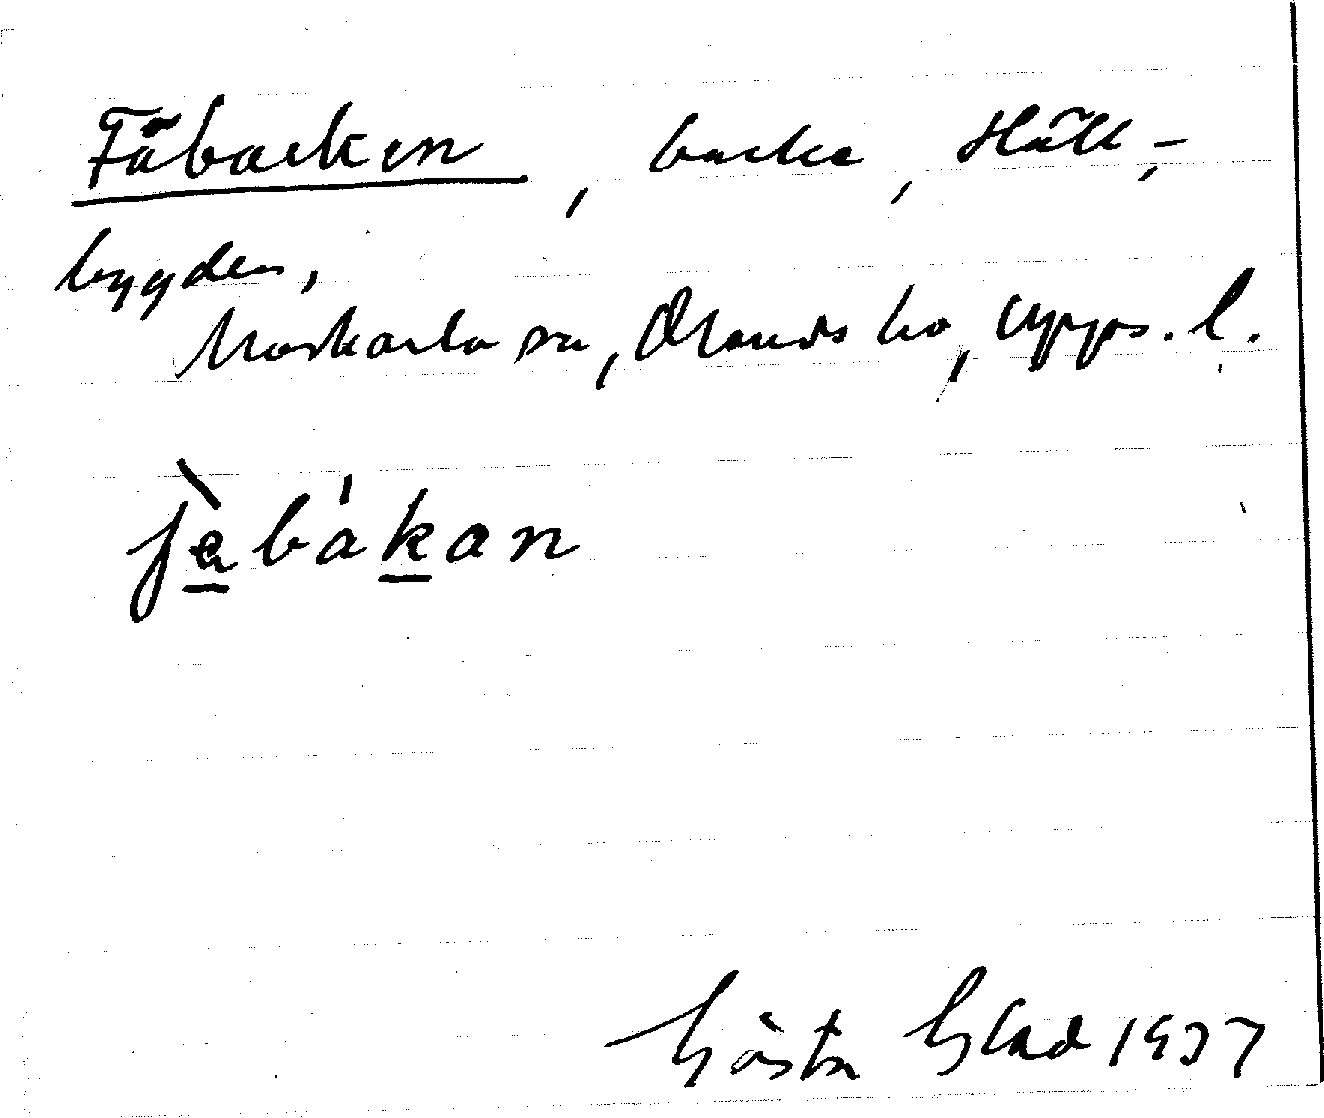 Fäbacken, backe, Häll,-
bygden,
Morkarla sn, Olands hd, Upps. l.
fèbákan
Gösta Blad 1937